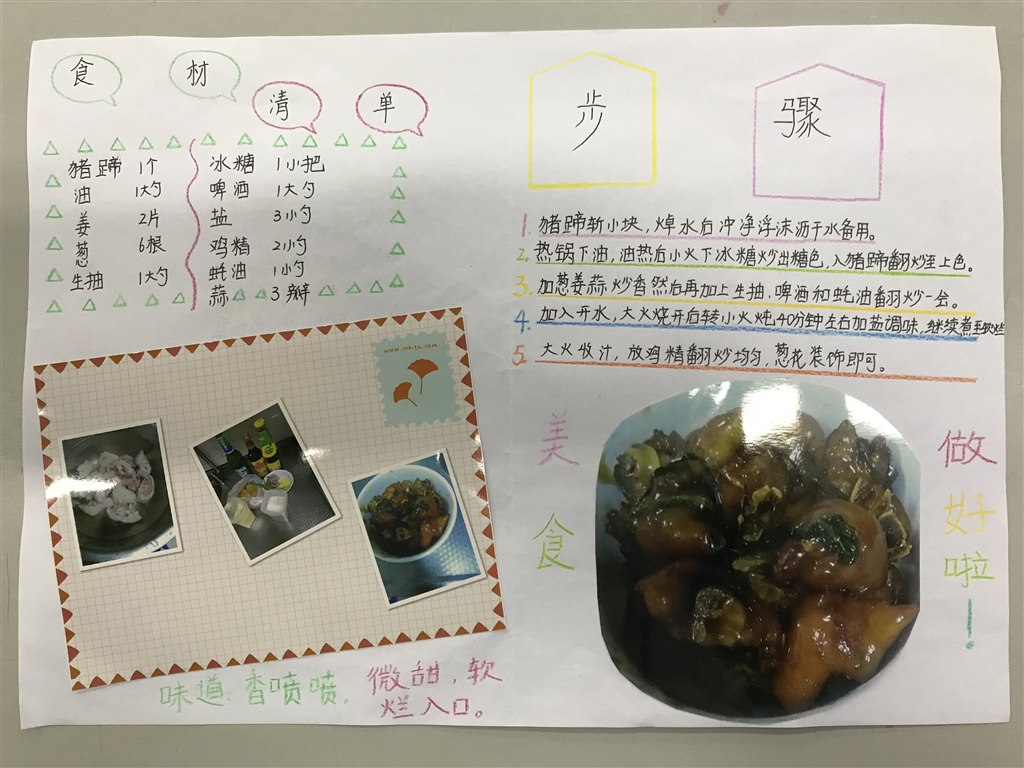 食材清单
猪蹄 1个
油 1大勺
姜 2片
葱 6根
生抽 1大勺
冰糖 1小把
啤酒 1大勺
盐 3小勺
鸡精 2小勺
蚝油 1小勺
蒜 3瓣
步骤
1. 猪蹄斩小块，焯水后冲净浮沫沥干水备用。
2. 热锅下油，油热后小火下冰糖炒出糖色，入猪蹄翻炒至上色。
3. 加葱姜蒜炒香然后再加上生抽、啤酒和蚝油翻炒一会。
4. 加入开水，大火烧开后转小火炖40分钟左右加盐调味，继续煮至软烂
5. 大火收汁，放鸡精翻炒均匀，葱花装饰即可。
www.meitu.com
美食
做好啦！
味道：香喷喷，微甜，软
烂入口。